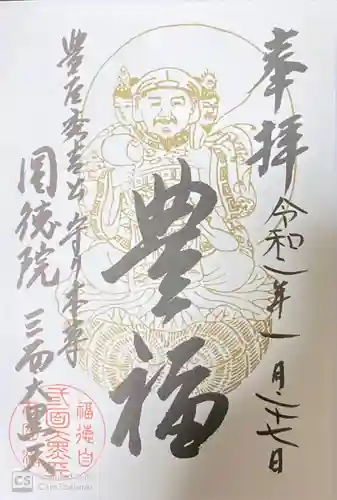 奉拝
令和二年一月二十七日
豊福
豊臣秀吉公守り本尊
三面大黒天
圓徳院
福徳自
三面大黒天
CS CamScanner